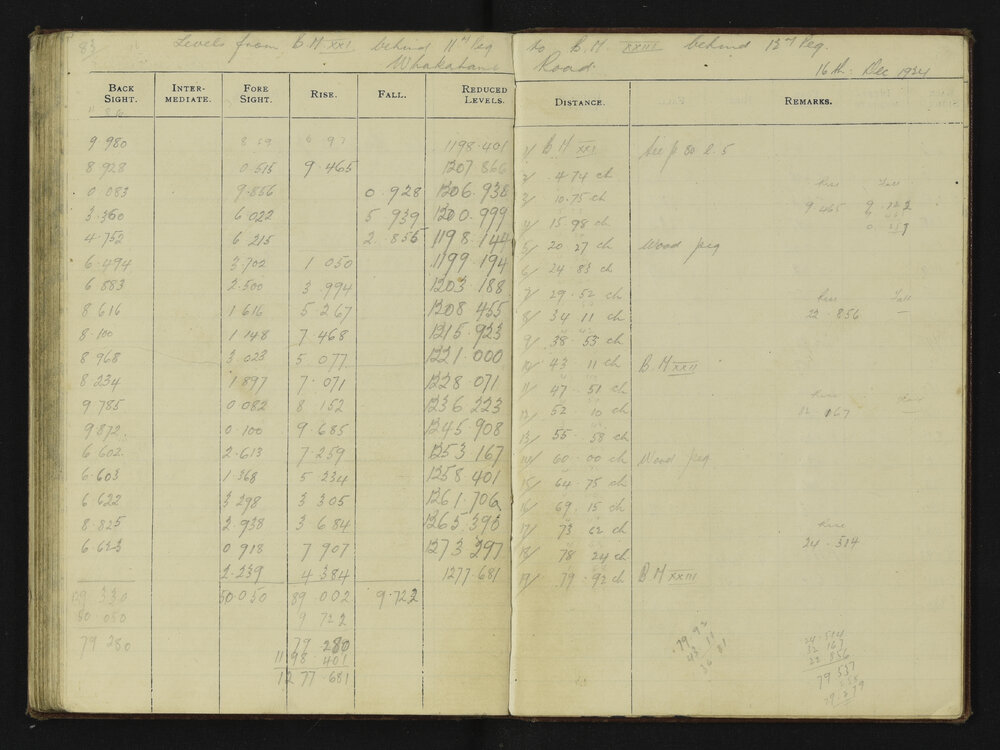 83/ Levels from B.M XXI behind 11th Peg to B.M. XXIII behind 13th Peg.
Whakatane Road. 16th. Dec 1924
BACK SIGHT. INTER-MEDIATE. FORE SIGHT. RISE. FALL. REDUCED LEVELS. DISTANCE. REMARKS.
9 980 1198.401 1/ B M XXI See p 80 l. 5
8 928 0.515 9.465 1207 866 2/ 4 74 ch
0 083 9.856 0.928 1206.938 3/ 10.75 ch
3.360 6 022 5 939 1200.999 4/ 15.98 ch
4.752 6 215 2 855 1198.144 5/ 20 27 ch Wood peg
6.494 3.702 1 050 1199 194 6/ 24 83 ch
6 883 2.500 3 994 1203 188 7/ 29.52 ch
8 616 1 616 5.267 1208 455 8/ 34 11 ch
8.100 1.148 7 468 1215.923 9/ 38.53 ch
8 968 3.023 5 077 1221.000 10/ 43 11 ch B.M XXII
8 234 1.897 7.071 1228 071 11/ 47.51 ch
9 785 0 082 8 152 1236 223 12/ 52 10 ch
9.872 0.100 9.685 1245 908 13/ 55 58 ch
6 602 2.613 7.259 1253 167 14/ 60 00 ch Wood peg
6.603 1.368 5 234 1258.401 15/ 64 75 ch
6.622 3 298 3 305 1261.706 16/ 69 15 ch
8.825 2.938 3 684 1265 390 17/ 73 62 ch
6.623 0 918 7 907 1273 297 18/ 78 24 ch
2.239 4 384 1277.681 19/ 79.92 ch B M XXIII
129 330 50.050 89 002 9.722
50 050 9 722
79 280 79 280
1198.401
1277.681
Rise Fall
9 465 9.722
Rise Fall
22.856 –
Rise
32.167 –
Rise
24.514
79 92
43 11
36 81
24.514
32 167
22 856
79 537